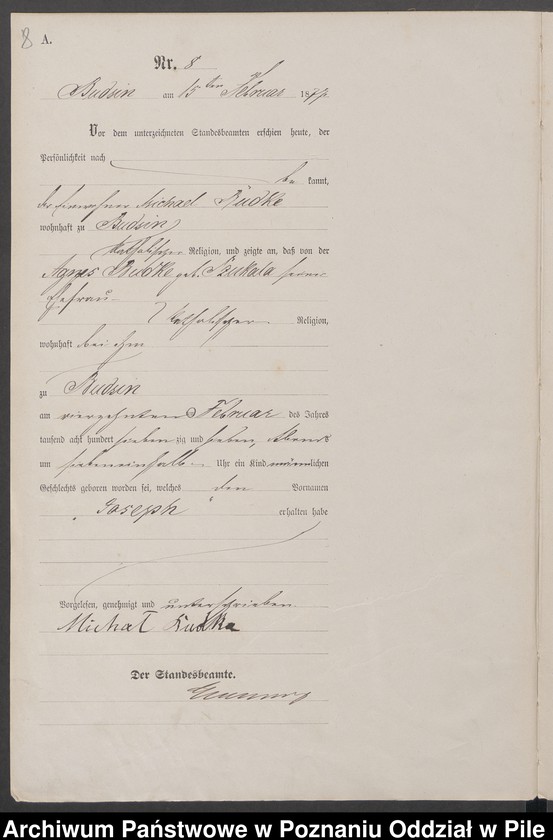 8 A.
Nr. 8
Budsin am 15ten Februar 1877.
Vor dem unterzeichneten Standesbeamten erschien heute, der
Persönlichkeit nach
be kannt,
der Einwohner Michael Rudke
wohnhaft zu Budsin
katholischer Religion, und zeigte an, daß von der
Agnes Rudke geb. Szukala seiner
Ehefrau
katholischer Religion,
wohnhaft bei ihm
zu Budsin
am vierzehnten Februar des Jahres
tausend acht hundert sieben zig und sieben, Abends
um siebeneinhalb Uhr ein Kind männlichen
Geschlechts geboren worden sei, welches den Vornamen
„Joseph“ erhalten habe
Vorgelesen, genehmigt und unterschrieben.
Michał Rudka
Der Standesbeamte.
Archiwum Państwowe w Poznaniu Oddział w Pile